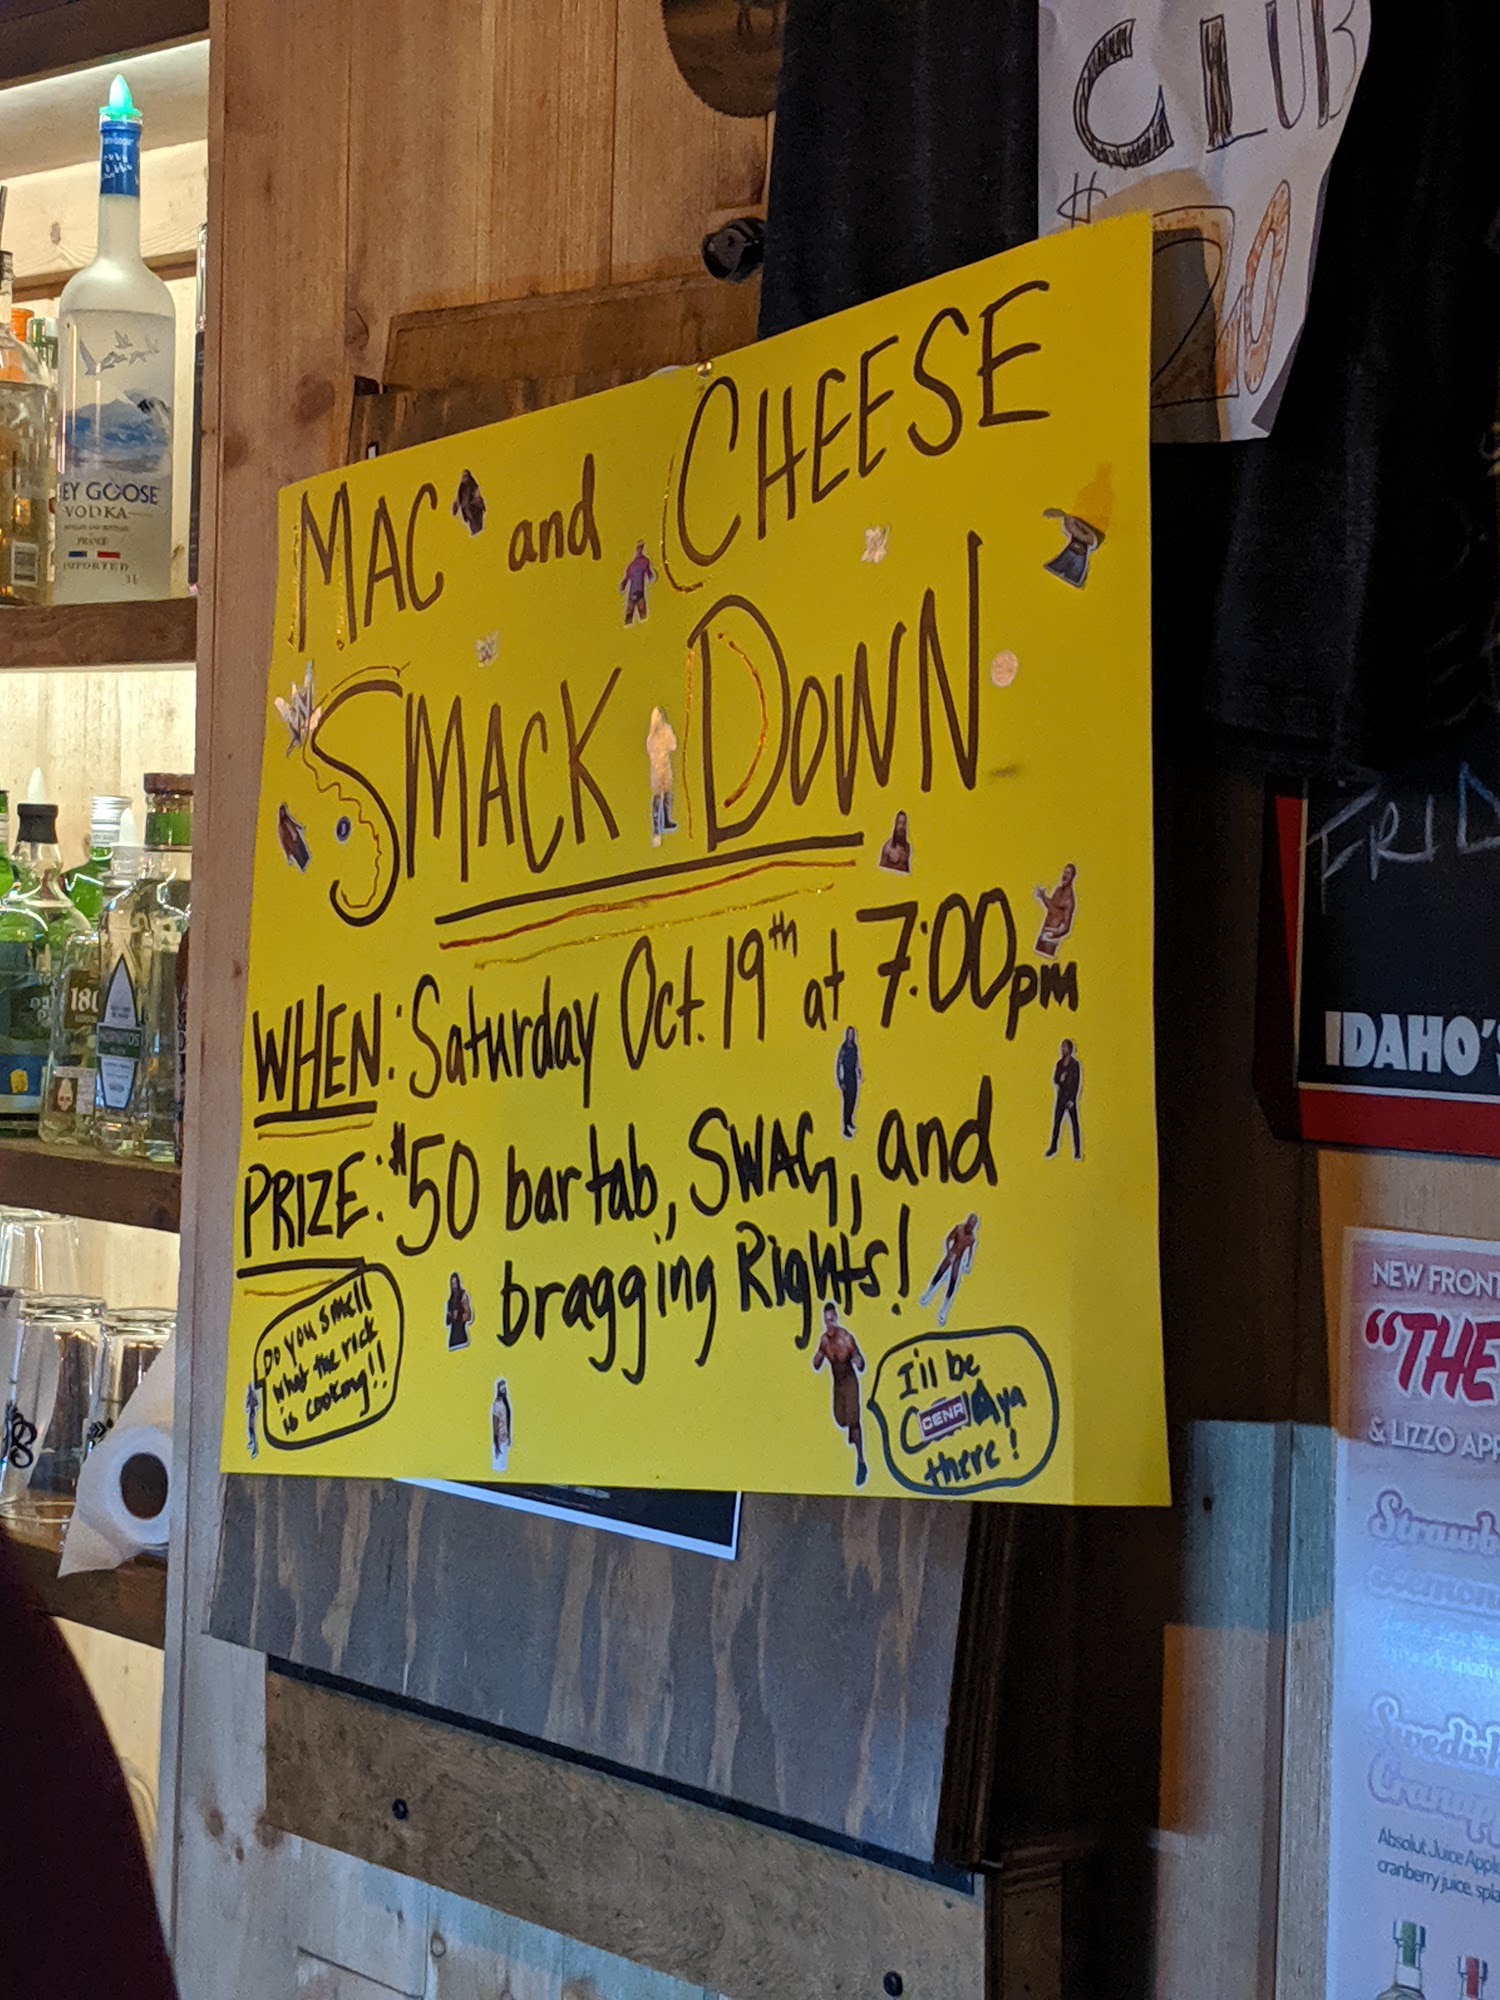 CLUB
$20
MAC and CHEESE
SMACK DOWN
WHEN: Saturday Oct. 19th at 7:00pm
PRIZE: $50 bar tab, SWAG, and
bragging Rights!
Do you smell
what the rock
is cooking!!
I'll be
CENA
ya
there!
EY GOOSE
VODKA
FRANCE
IMPORTED
1L
180
FRID
IDAHO'S
NEW FRONT
"THE
& LIZZO APP
Strawb
Lemon
splash
Swedish
Granap
Absolut Juice Apple
cranberry juice, spla